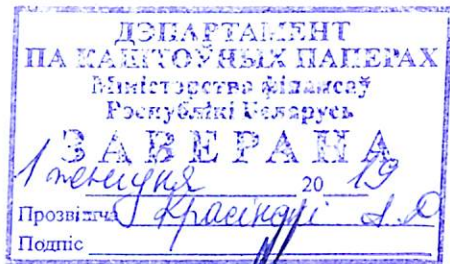 ДЭПАРТАМЕНТ
ПА КАШТОЎНЫХ ПАПЕРАХ
Міністэрства фінансаў
Рэспублікі Беларусь
ЗАВЕРАНА
1 20 19
Прозвішча
Подпіс